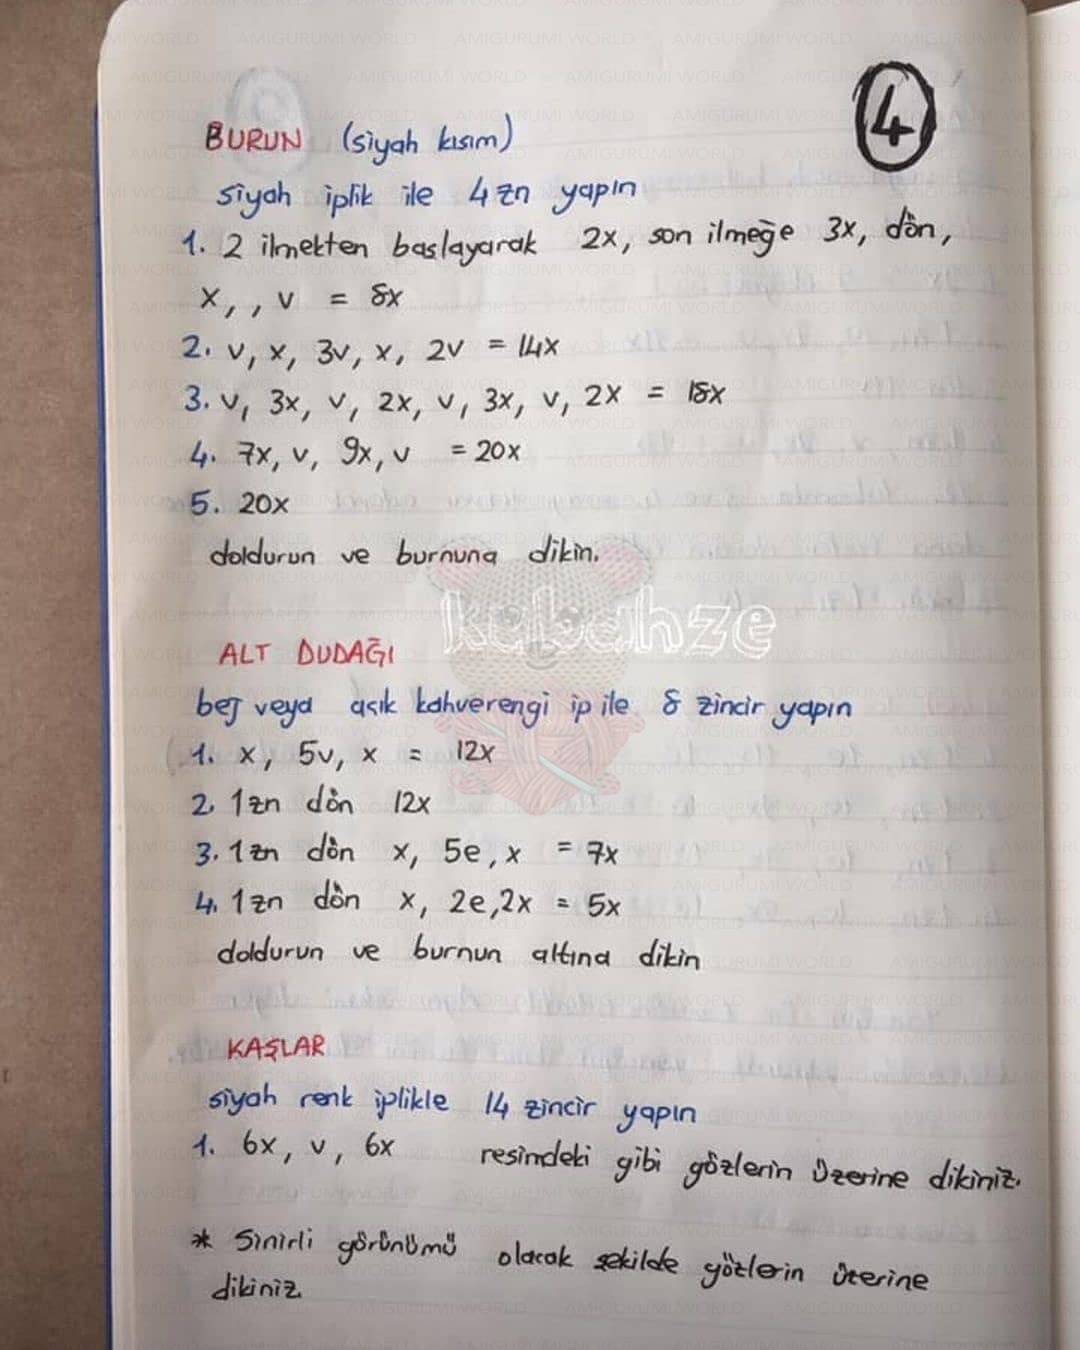 4
BURUN (siyah kısım)
siyah iplik ile 4 zn yapın
1. 2 ilmekten başlayarak 2x, son ilmeğe 3x, dön,
x, , v = 8x
2. v, x, 3v, x, 2v = 14x
3. v, 3x, v, 2x, v, 3x, v, 2x = 18x
4. 7x, v, 9x, v = 20x
5. 20x
doldurun ve burnuna dikin.
kabahze
ALT DUDAĞI
bej veya açık kahverengi ip ile 8 zincir yapın
1. x, 5v, x = 12x
2. 1zn dön 12x
3. 1zn dön x, 5e, x = 7x
4. 1zn dön x, 2e, 2x = 5x
doldurun ve burnun altına dikin
KAŞLAR
siyah renk iplikle 14 zincir yapın
1. 6x, v, 6x resimdeki gibi gözlerin üzerine dikiniz.
* Sinirli görünümü olacak şekilde gözlerin üzerine
dikiniz.
AMIGURUMI WORLD